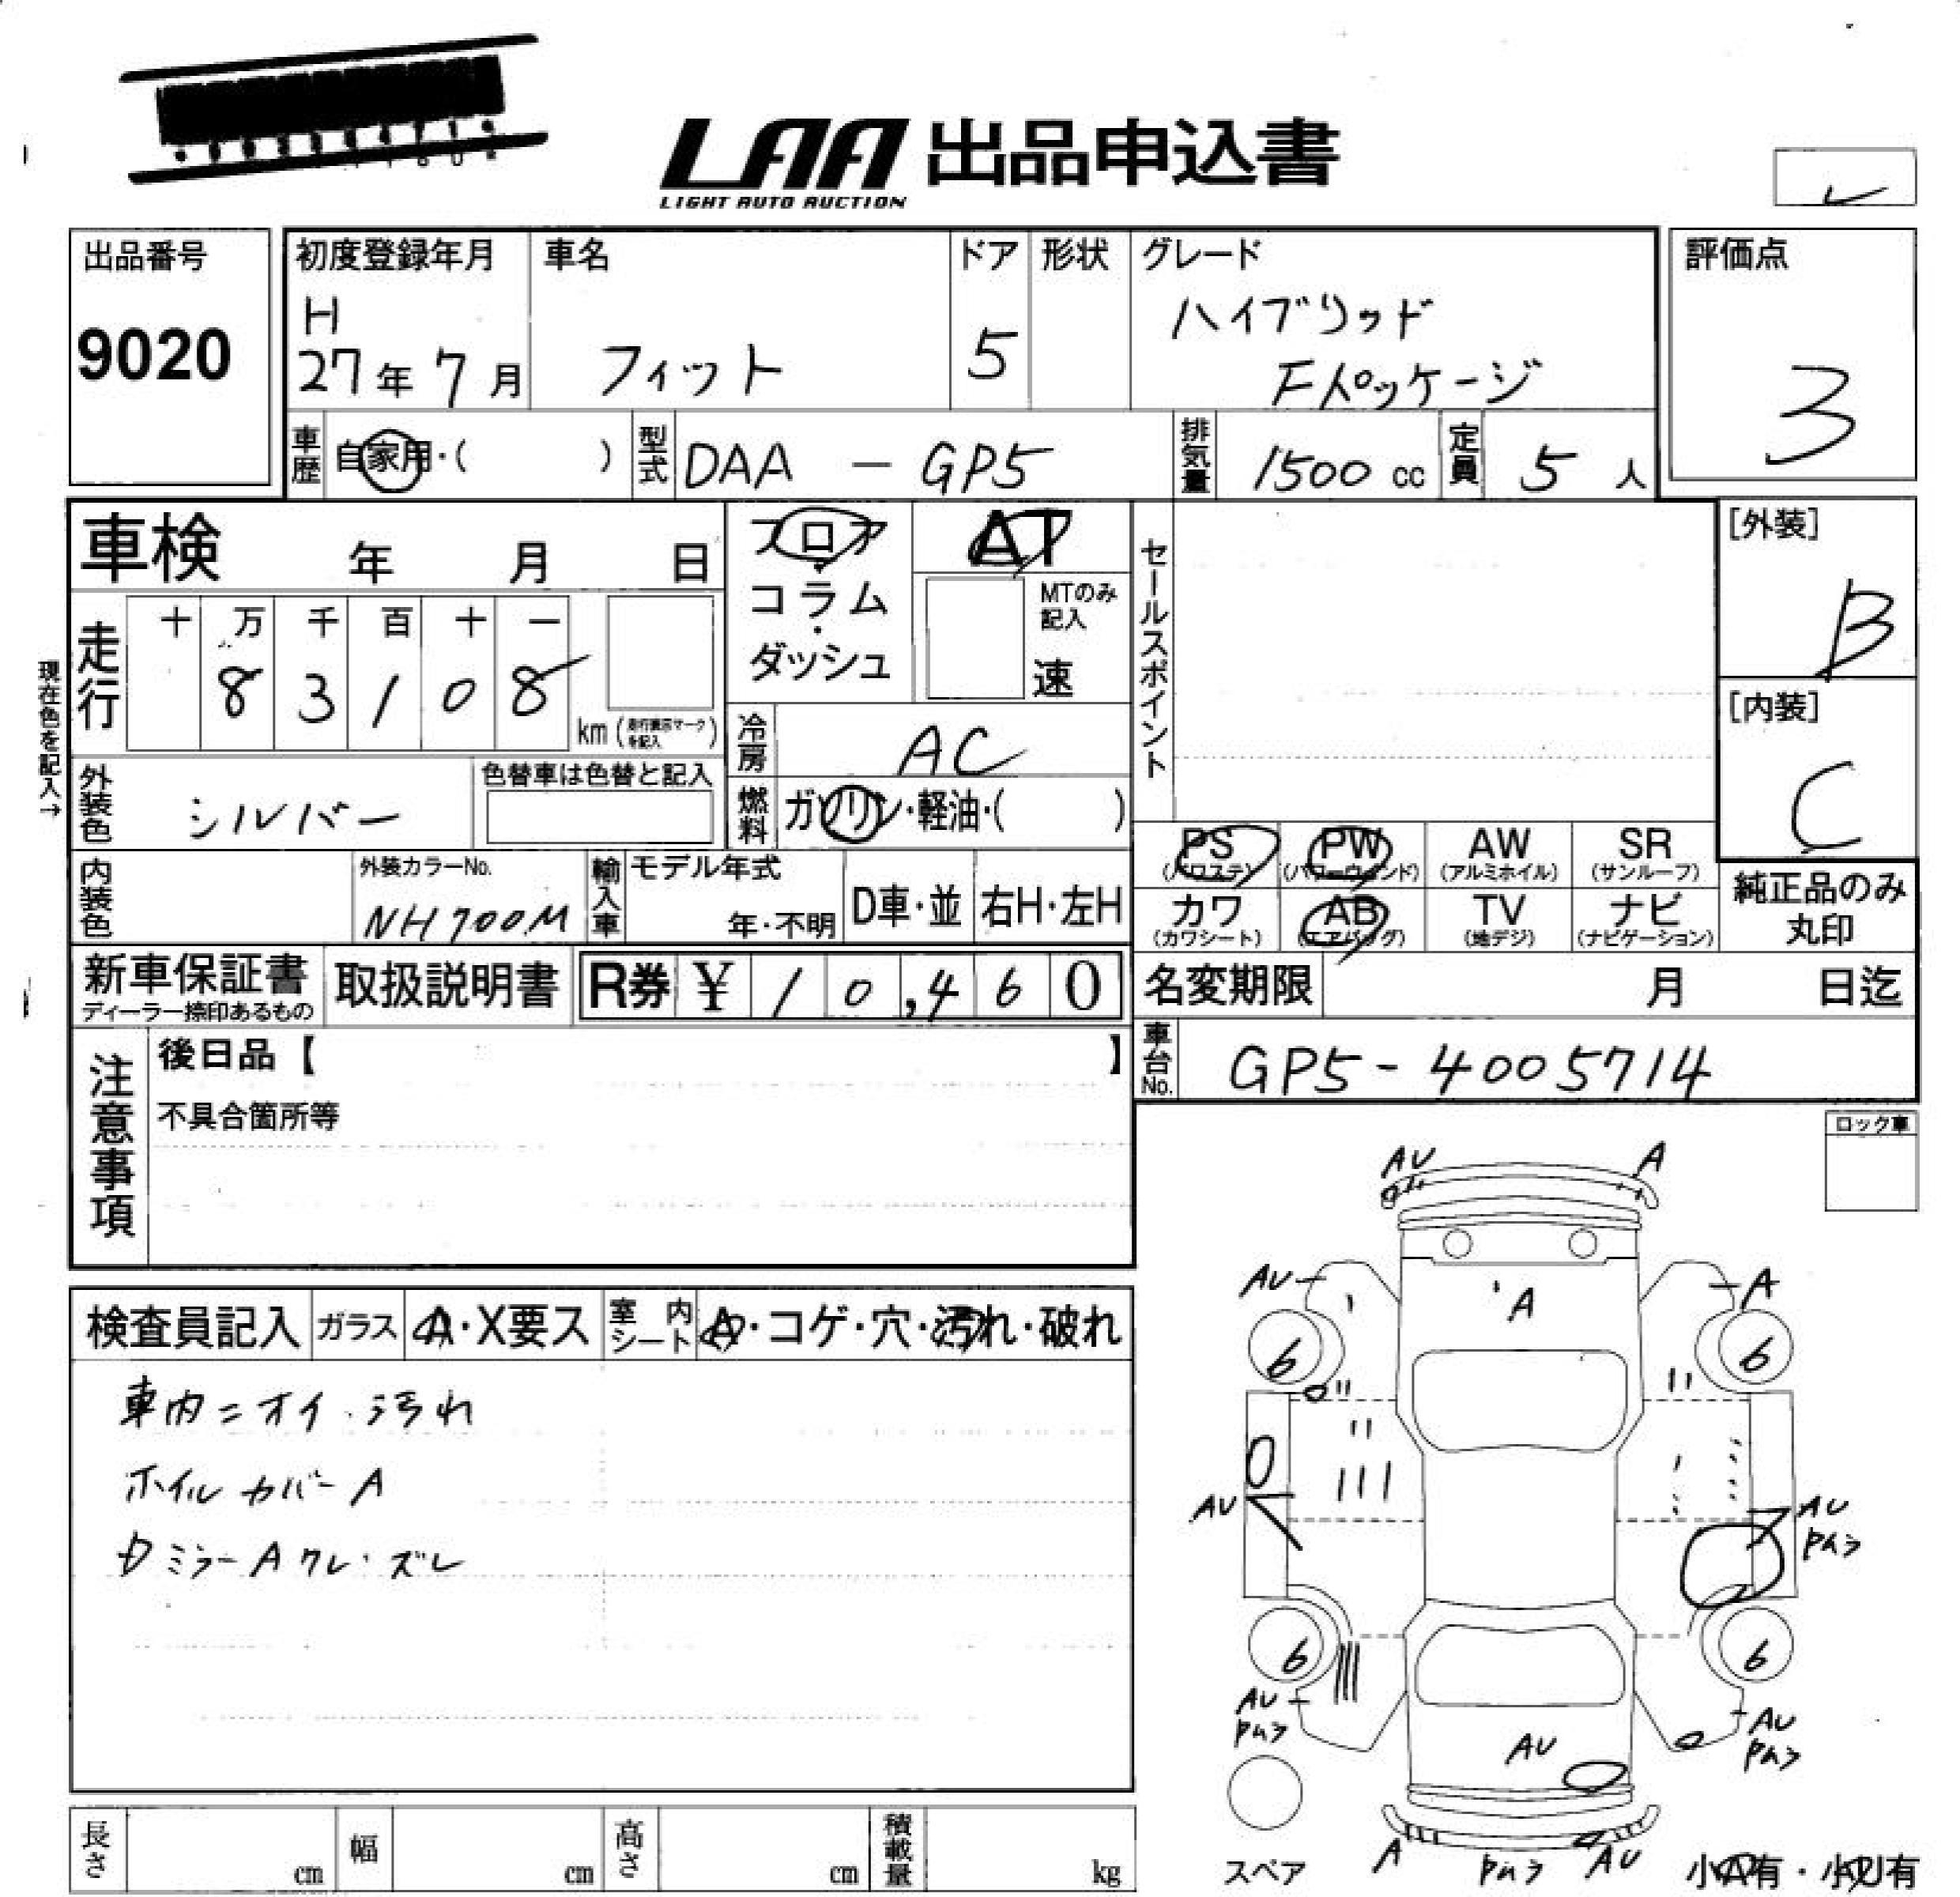 LAA 出品申込書
LIGHT AUTO AUCTION
出品番号
9020
初度登録年月
H
27年 7月
車名
フィット
ドア
5
形状
グレード
ハイブリッド
Fパッケージ
評価点
3
車歴
自家用・( )
型式
DAA - GP5
排気量
1500 cc
定員
5 人
車検 年 月 日
フロア・
コラム・
ダッシュ
AT
MTのみ
記入
速
セールスポイント
[外装]
B
[内装]
C
現在色を記入→
走行
十 万 千 百 十 一
8 3 1 0 8
km (走行表示マークを記入)
冷房
AC
外装色
シルバー
色替車は色替と記入
燃料
ガソリン・軽油・( )
PS
(パワステ)
PW
(パワーウィンド)
AW
(アルミホイル)
SR
(サンルーフ)
カワ
(カワシート)
AB
(エアバッグ)
TV
(地デジ)
ナビ
(ナビゲーション)
純正品のみ
丸印
内装色
外装カラーNo.
NH700M
輸入車
モデル年式
年・不明
D車・並
右H・左H
新車保証書
ディーラー捺印あるもの
取扱説明書
R券 ¥ 10,460
名変期限 月 日迄
車台No.
GP5-4005714
注意事項
後日品【 】
不具合箇所等
ロック車
検査員記入
ガラス
A・X要ス
室内シート
A・コゲ・穴・汚れ・破れ
車内ニオイ・汚れ
ホイルカバーA
ミラーAワレ・ズレ
AU
A
AU
A
A
6
6
AU
AU
6
6
AU
AU
AU
スペア
A
AU
小A有・小U有
長さ cm
幅 cm
高さ cm
積載量 kg